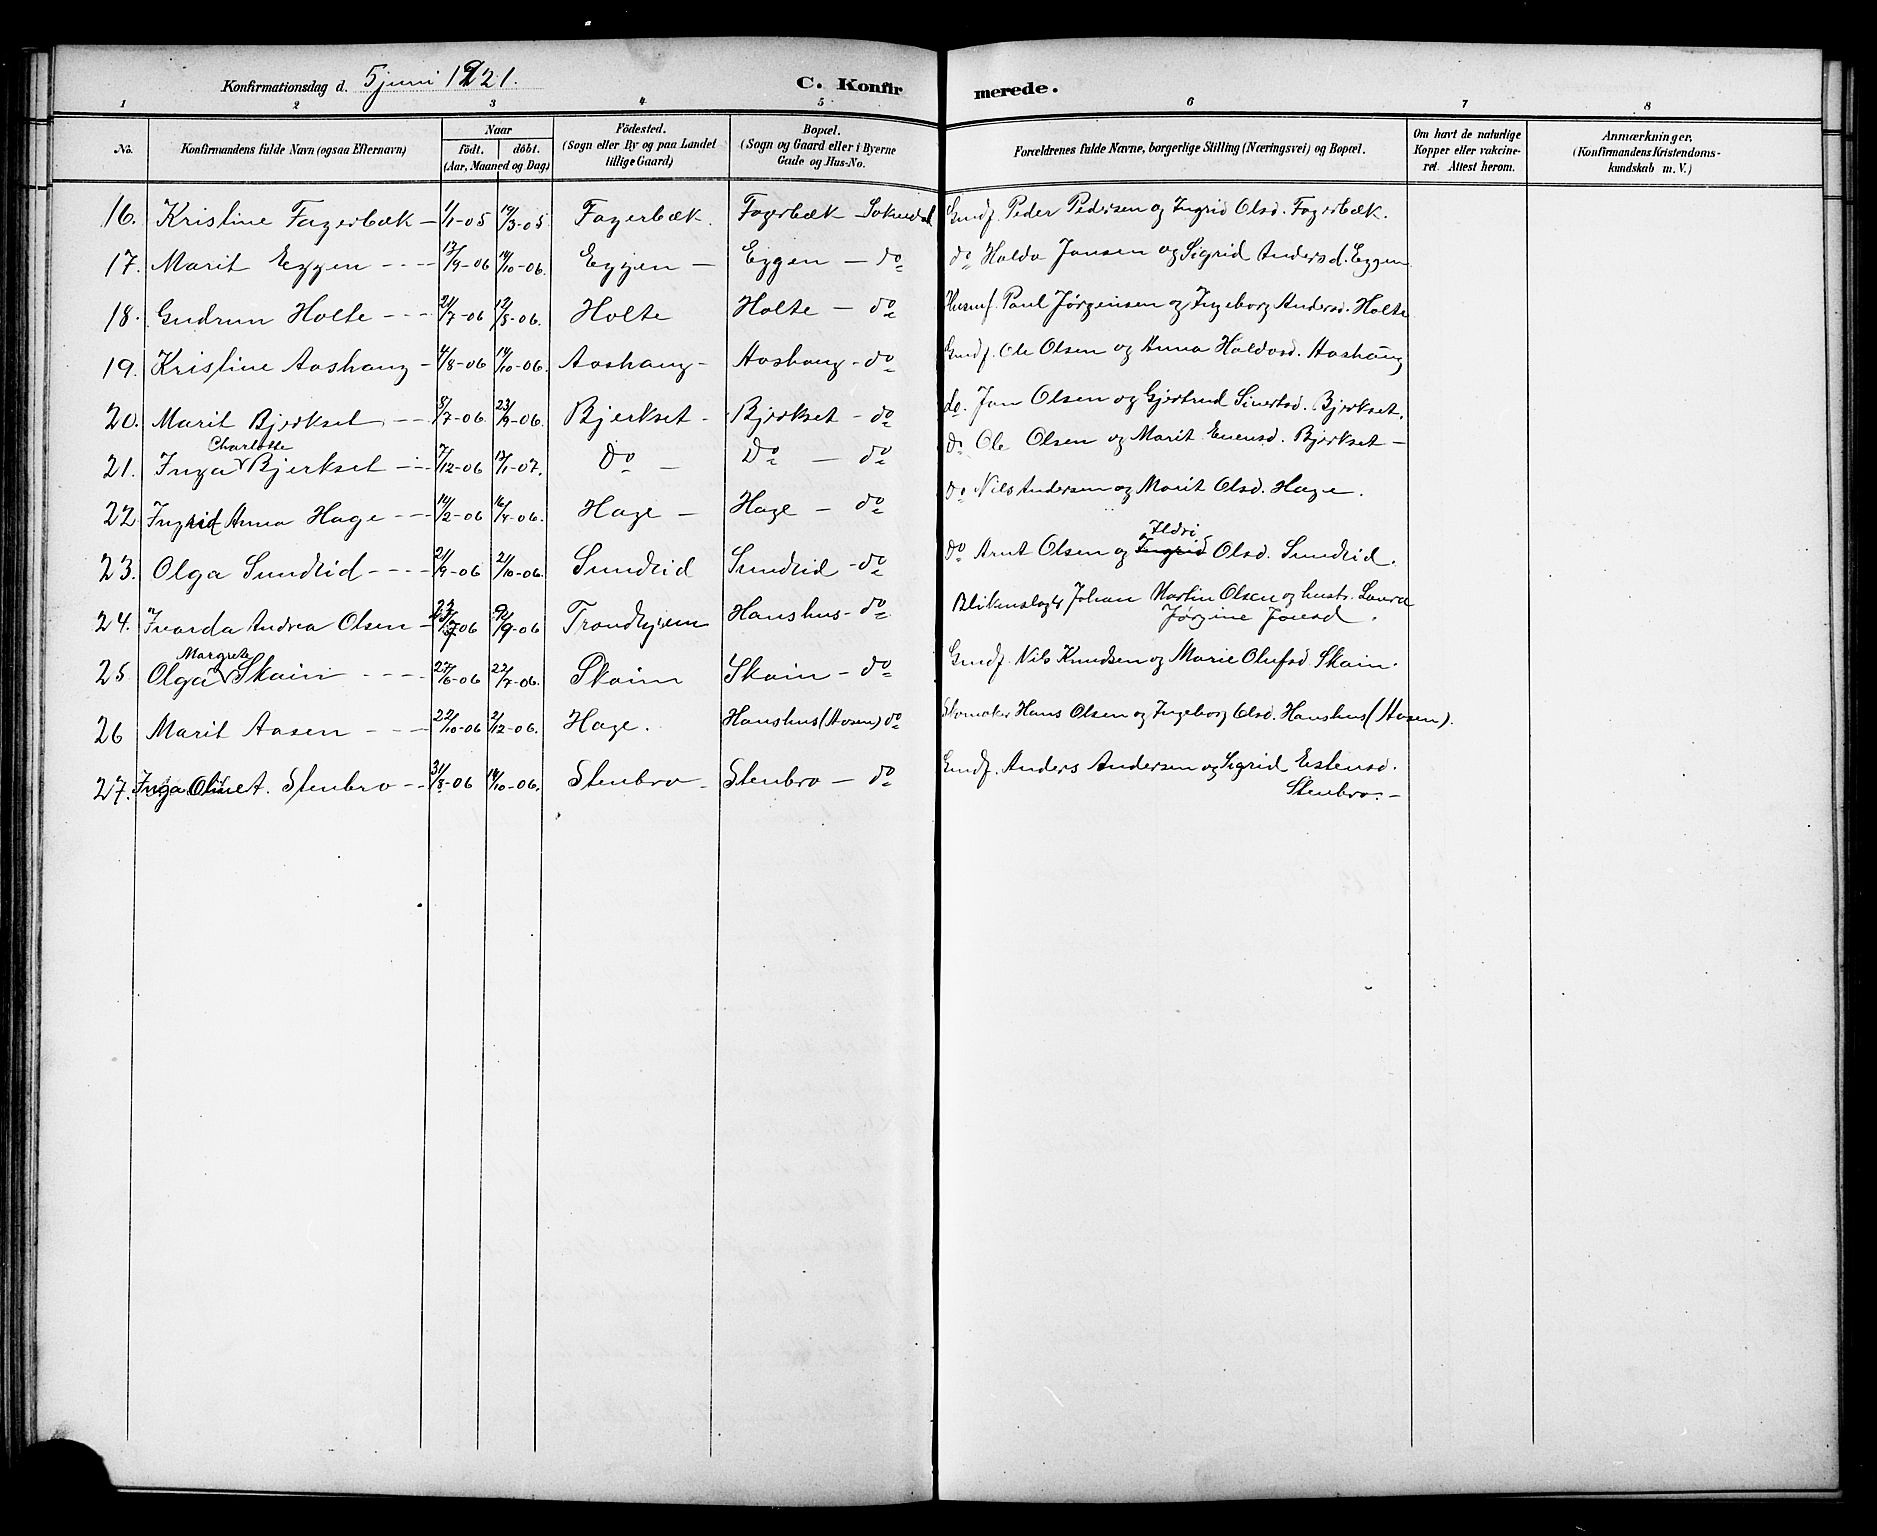 Konfirmationsdag d. 5 juni 1921.
C. Konfirmerede.
1 2 3 4 5 6 7 8
No.
Konfirmandens fulde Navn (ogsaa Efternavn)
Naar
födt. döbt.
(Aar, Maaned og Dag)
Födested.
(Sogn eller By og paa Landet
tillige Gaard)
Bopæl.
(Sogn og Gaard eller i Byerne
Gade og Hus-No.
Forældrenes fulde Navne, borgerlige Stilling (Næringsvei) og Bopæl.
Om havt de naturlige
Kopper eller vakcine-
ret. Attest herom.
Anmærkninger,
(Konfirmandens Kristendoms-
kundskab m. V.)
16. Kristine Fagerbæk 1/1-05 19/3-05 Fagerbæk. Fagerbæk - Soknedal Gmdf. Peder Pedersen og Ingrid Olsd. Fagerbæk.
17. Marit Eggen 13/9-06 14/10-06. Eggen - Eggen - do do Haldo Jonsen og Sigrid Andersd. Eggen
18. Gudrun Holte 21/7-06 12/8-06. Holte Holte - do Husmf. Paul Jørgensen og Ingeborg Andersd. Holte
19. Kristine Aashaug 4/8-06 14/10-06. Aashaug - Aashaug - do Gmdf. Ole Olsen og Anna Haldosd. Aashaug
20. Marit Bjerkset 8/7-06 23/9-06. Bjerkset - Bjerkset - do do. Jon Olsen og Gjertrud Sivertsd. Bjerkset.
Charlotte
21. Inga Bjerkset 7/12-06 13/1-07. Do - Do - do do Ole Olsen og Marit Evensd. Bjerkset -
22 Ingrid Anna Hage 14/2-06 16/4-06. Hage - Hage - do do Nils Andersen og Marit Olsd. Hage.
Ildri
23. Olga Sundlid 21/9-06 21/10-06. Sundlid Sundlid - do do Arnt Olsen og Ingrid Olsd. Sundlid.
24. Ivarda Andrea Olsen 06 9/9-06 Trondhjem Hanshus - do Blikenslager Johan Martin Olsen og hustr. Laura
Jørgine Jonsd.
Margrete
25 Olga Skain 27/6-06 22/7-06. Skain Skain - do Gmdf. Nils Knudsen og Marie Olufsd. Skain.
26 Marit Aasen 22/10-06 2/12-06. Hage. Hanshus (Aasen) do Skomaker Hans Olsen og Ingeborg Olsd. Hanshus (Aasen).
27. Inga Oline A. Stenbro 31/8-06 14/10-06. Stenbro - Stenbro - do Gmdf. Anders Andersen og Sigrid Estensd.
Stenbro. -